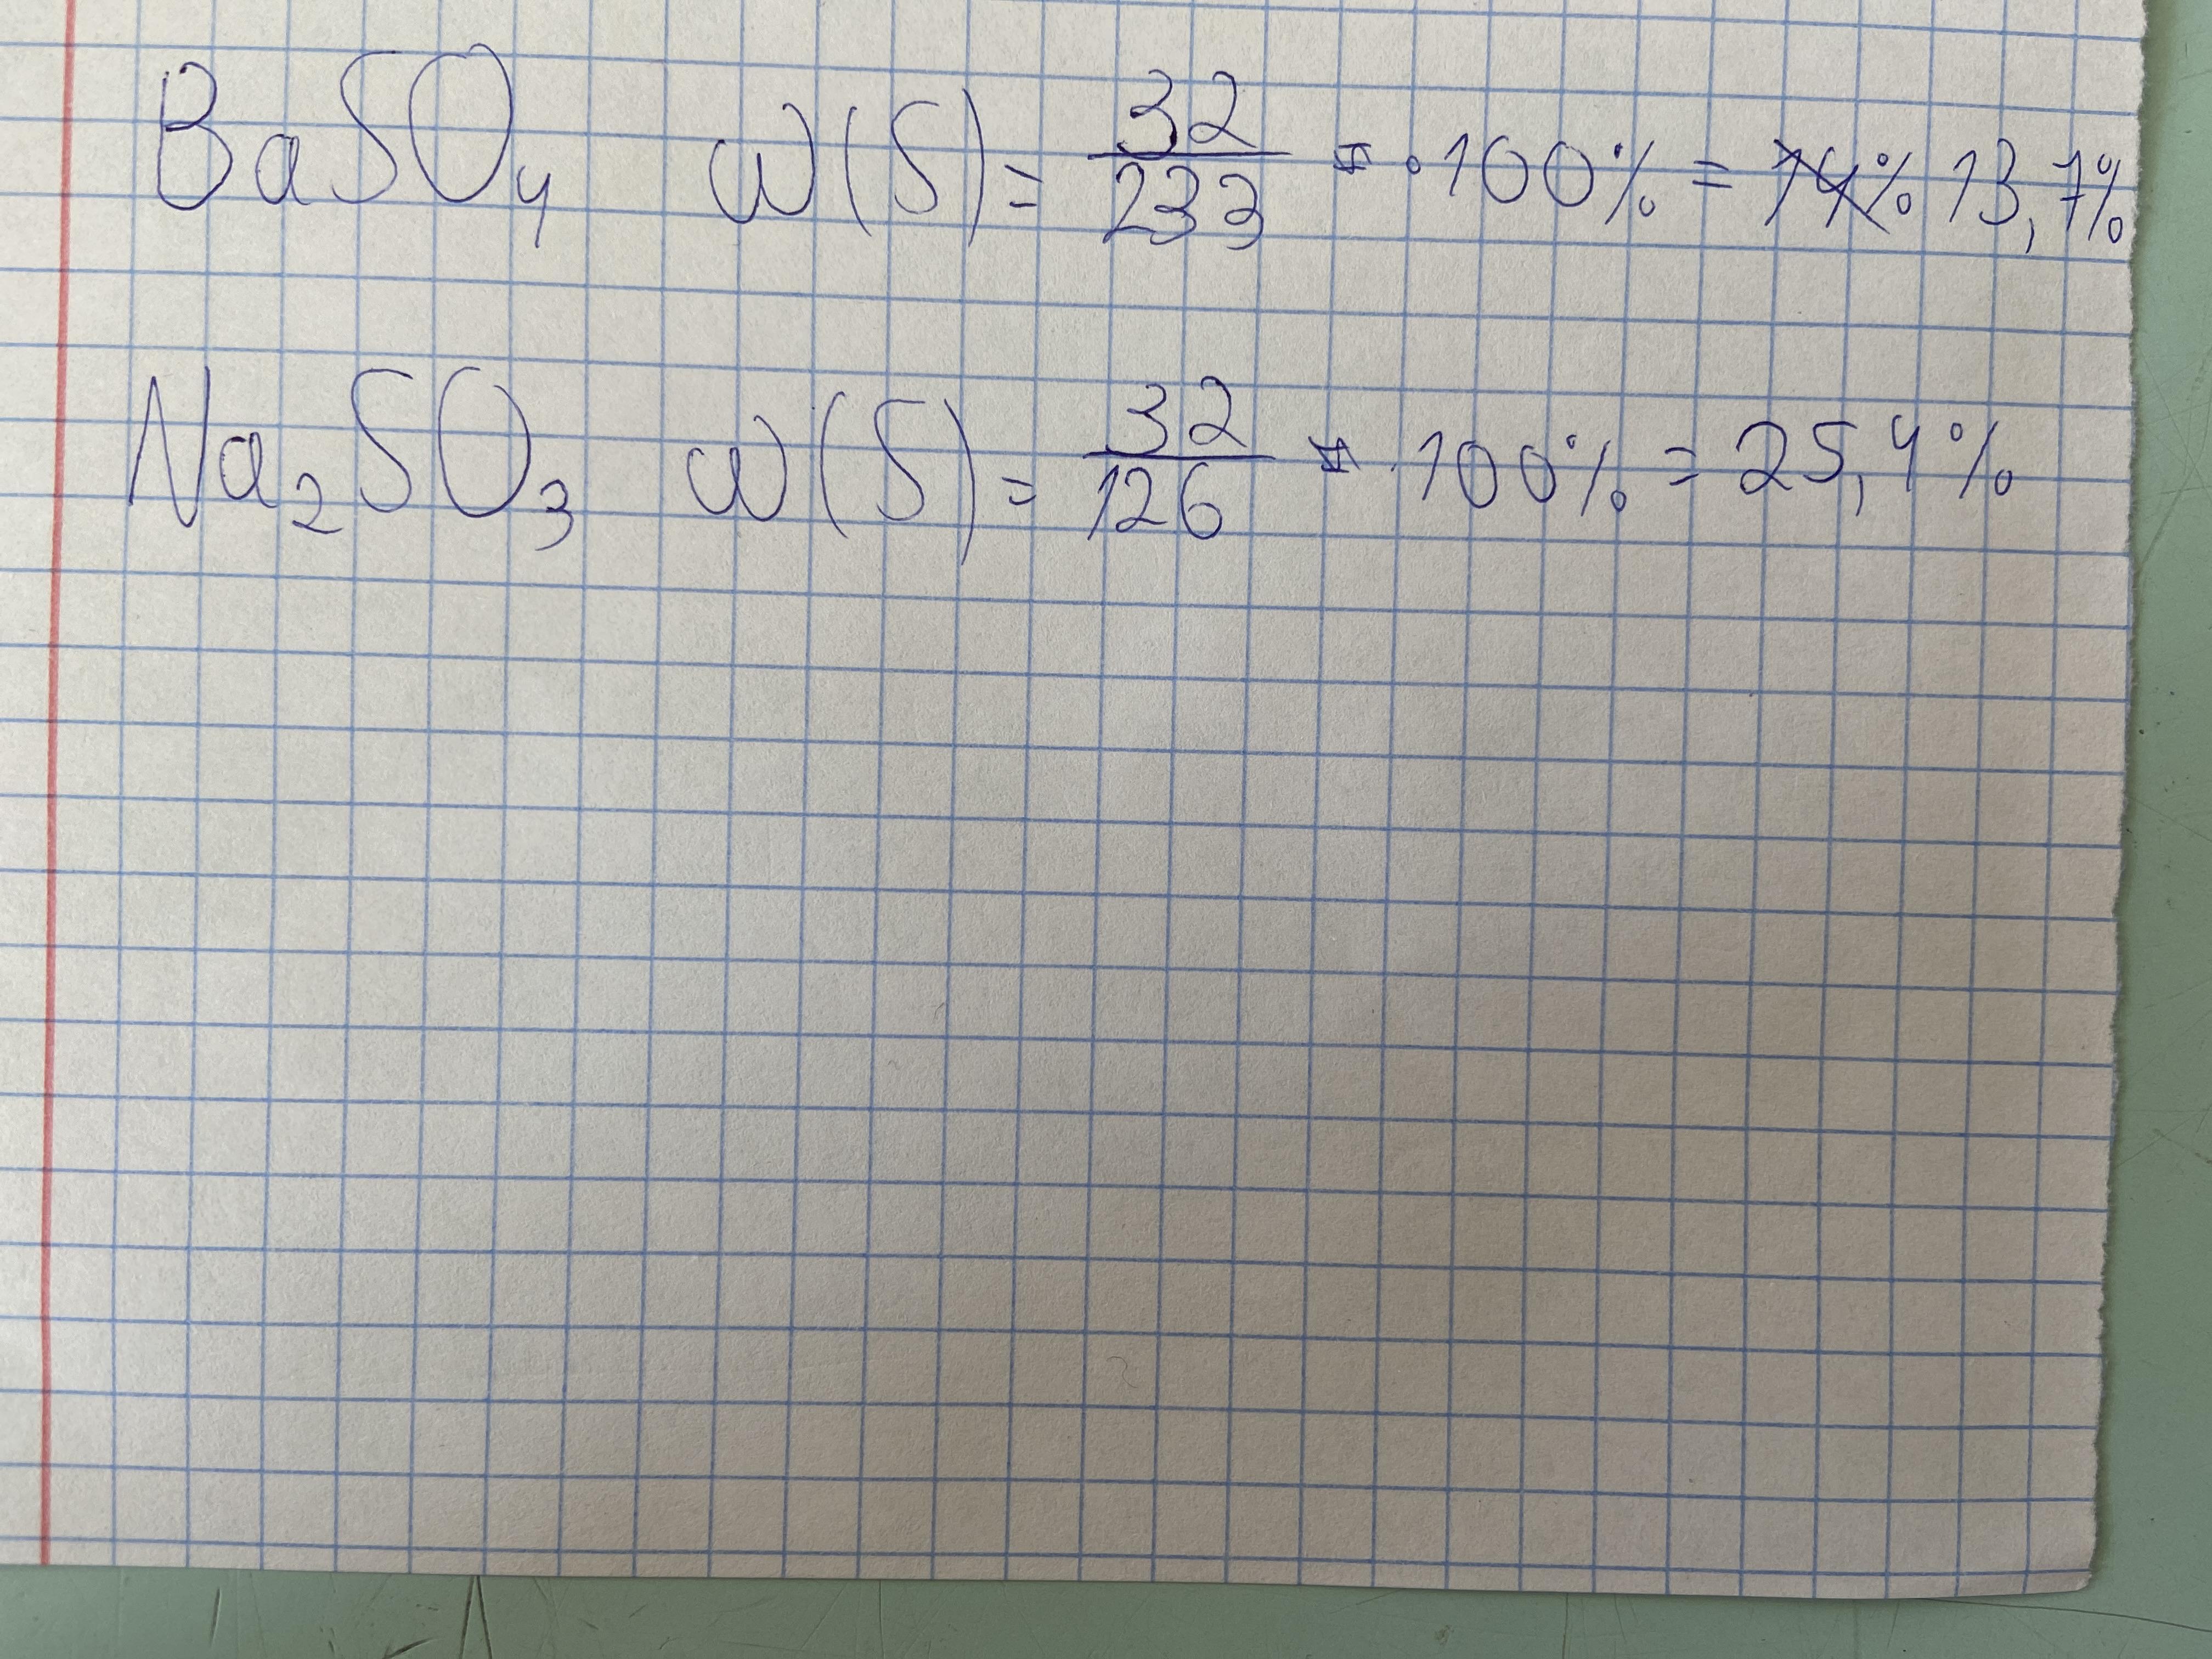 BaSO₄ ω(S) = 32/233 · 100% = 14% 13,7%
Na₂SO₃ ω(S) = 32/126 · 100% = 25,4%